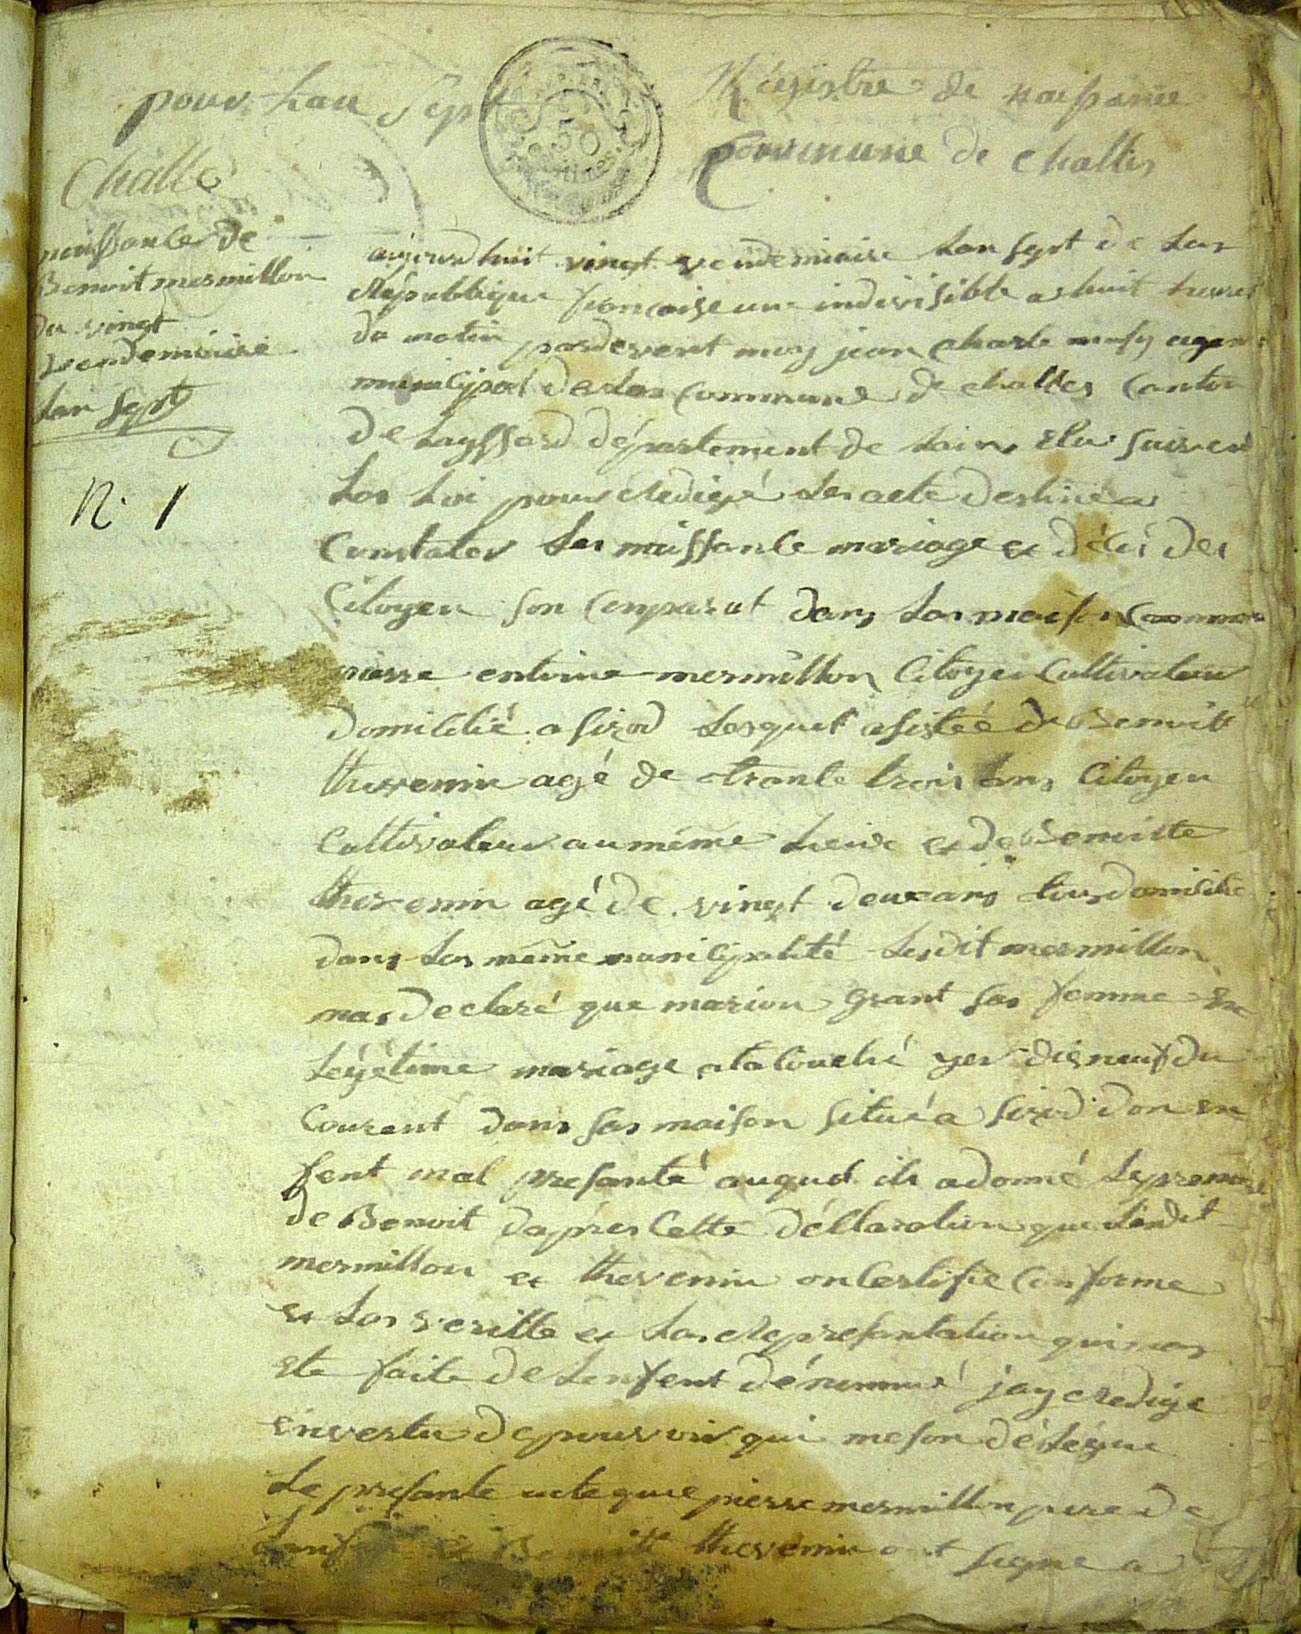 pour Lan Sept
Régistre de naissance
Commune de Challes
50
Centimes
Challe
naissance de
Benoit mermillon
du vingt
vendemiaire
Lan Sept
N. 1
aujourdhuit vingt vendemiaire Lan sept de Las
Republique francaise une indivisible a huit heures
du matin pardevent moy jean Charle
municipal de Las Commune de challes Canton
De département de Lain Elu suivent
Las Loi pour Redigé Les acte destiné a
Constater Les naissance mariage et décé des
Citoyen son Comparut dans Las maison Commune
pierre entoine mermillon Citoyen Cultivateur
Domicilié a sirod Lesquel asisteé de Benoitt
thevenin agé de trante trois ans Citoyen
Cultivateur au même Lieux et de Benoiste
thevenin agé de vingt deux ans tous domicilie
dans Las même municipalité Lesdit mermillon
mas declaré que marion Grant sas femme En
Légétime mariage atacouché yer disneuf du
Courent dans sas maison situé a sirod don en
fent mal presanté auquel ils adonné Le prenom
de Benoit dapres Cette déCLaration que Lesdit
mermillon et thevenin on Certifie Conforme
et Las verilte et Las Representation qui mas
Ete faite de Lenfent dénommé jay Redige
envertu de pouvoir qui meson délégue
Le presante acte que pierre mermillon pere de
Lenfent et Benoitt thevenin ont signe a